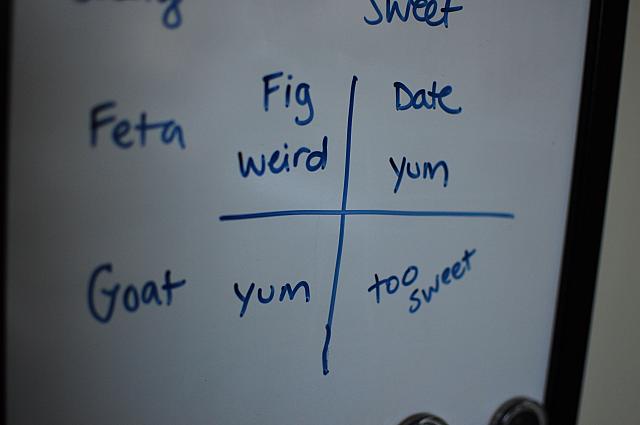 sweet
Fig Date
Feta weird yum
Goat yum too sweet